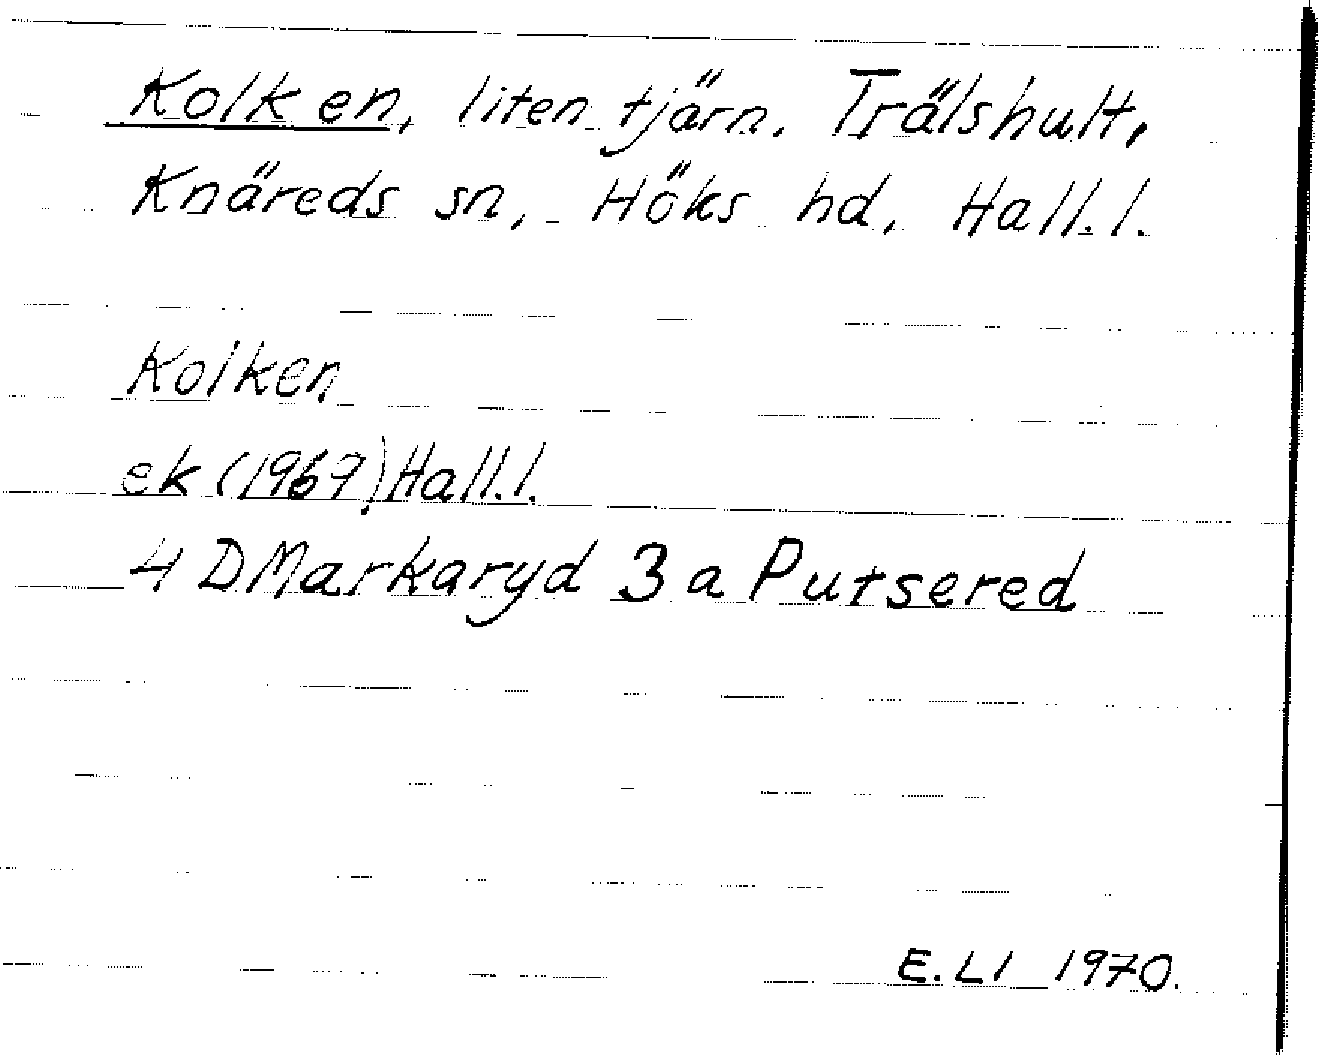 Kolken, liten tjärn. Trälshult,
Knäreds sn, Höks hd, Hall.l.
Kolken
ek (1967), Hall.l.
4 D Markaryd 3 a Putsered
E. Ll 1970.